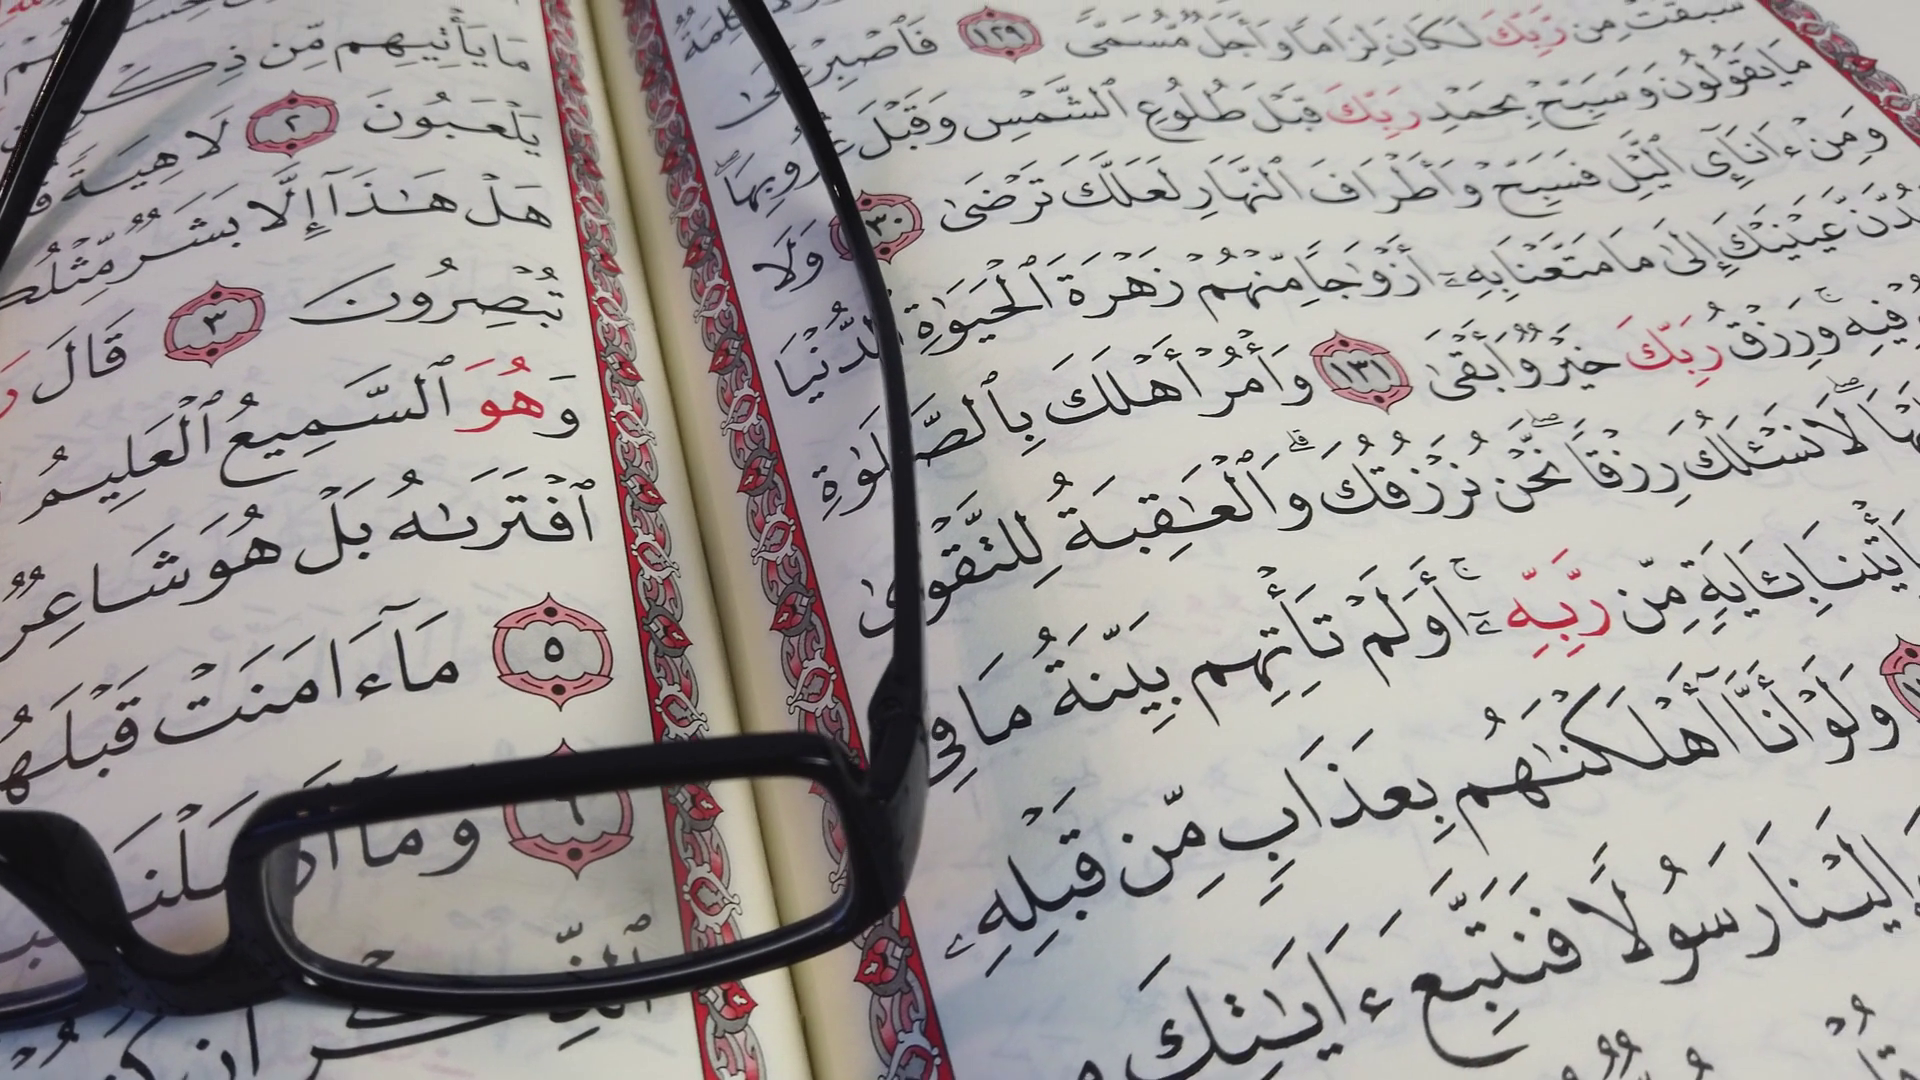 كَلِمَةٌ
سَبَقَتْ مِن رَّبِّكَ لَكَانَ لِزَامًا وَأَجَلٌ مُّسَمًّى ١٢٩ فَٱصْبِرْ عَلَىٰ
مَا يَقُولُونَ وَسَبِّحْ بِحَمْدِ رَبِّكَ قَبْلَ طُلُوعِ ٱلشَّمْسِ وَقَبْلَ غُرُوبِهَاۖ
وَمِنْ ءَانَآئِ ٱلَّيْلِ فَسَبِّحْ وَأَطْرَافَ ٱلنَّهَارِ لَعَلَّكَ تَرْضَىٰ ١٣٠ وَلَا
عَيْنَيْكَ إِلَىٰ مَا مَتَّعْنَا بِهِۦٓ أَزْوَٰجًا مِّنْهُمْ زَهْرَةَ ٱلْحَيَوٰةِ ٱلدُّنْيَا
فِيهِۚ وَرِزْقُ رَبِّكَ خَيْرٌ وَأَبْقَىٰ ١٣١ وَأْمُرْ أَهْلَكَ بِٱلصَّلَوٰةِ
لَا نَسْـَٔلُكَ رِزْقًاۖ نَّحْنُ نَرْزُقُكَۗ وَٱلْعَٰقِبَةُ لِلتَّقْوَىٰ
يَأْتِينَا بِـَٔايَةٍ مِّن رَّبِّهِۦٓۚ أَوَلَمْ تَأْتِهِم بَيِّنَةُ مَا فِي
وَلَوْ أَنَّآ أَهْلَكْنَٰهُم بِعَذَابٍ مِّن قَبْلِهِۦ
إِلَيْنَا رَسُولًا فَنَتَّبِعَ ءَايَٰتِكَ
مَا يَأْتِيهِم مِّن ذِكْرٍ
يَلْعَبُونَ ٢ لَاهِيَةً
هَلْ هَٰذَآ إِلَّا بَشَرٌ مِّثْلُكُ
تُبْصِرُونَ ٣ قَالَ
وَهُوَ ٱلسَّمِيعُ ٱلْعَلِيمُ
ٱفْتَرَىٰهُ بَلْ هُوَ شَاعِرٌ
٥ مَآ ءَامَنَتْ قَبْلَهُ
٦ وَمَآ أَرْسَلْنَا
ٱلذِّكْرِ إِن كُ